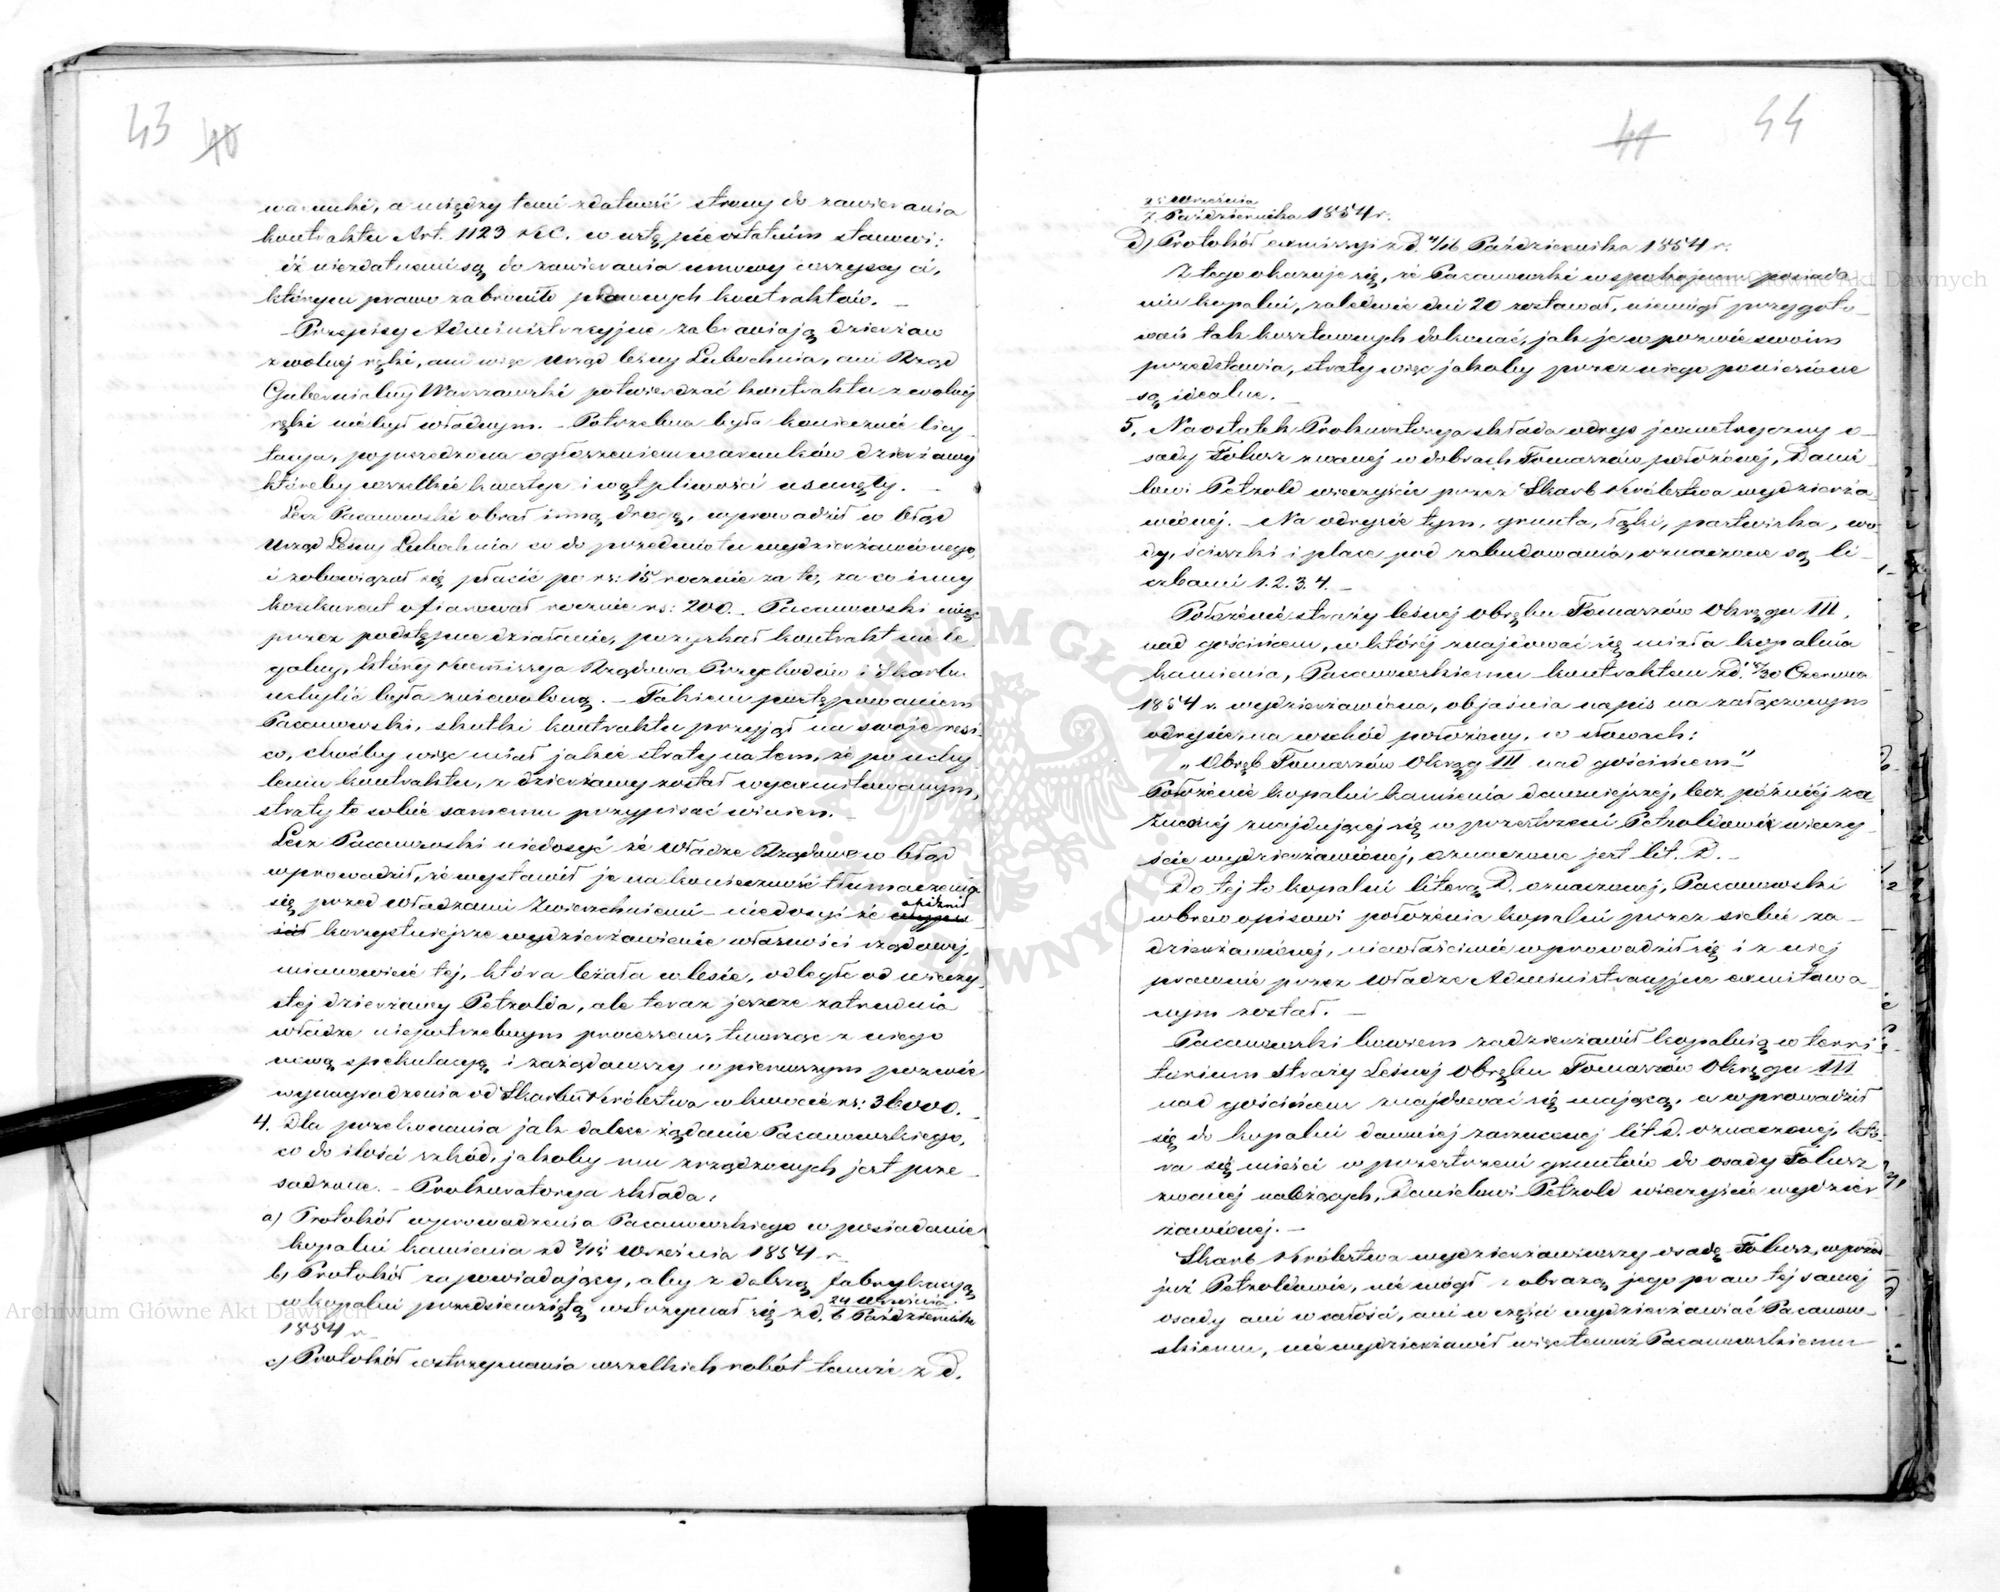 43 40
warunki, a między temi zdatność strony do zawierania
kontraktu Art. 1123 K.C. w ustępie ostatnim stanowi:
iż niezdatnemi są do zawierania umowy wszyscy ci,
którym prawo zabroniło pewnych kontraktów. _
Przepisy Administracyjne zabraniają dzierżaw
z wolnej ręki, ani więc Urząd leśny Lubochnia, ani Rząd
Gubernialny Warszawski potwierdzać kontraktu z wolnej
ręki nie był władnym. _ Potrzebna była koniecznie licy_
tacya, poprzedzona ogłoszeniem warunków dzierżawy
któreby wszelkie kwestye i wątpliwości usunęły. _
Lecz Pacanowski obrał inną drogę, wprowadził w błąd
Urząd Leśny Lubochnia co do przedmiotu wydzierżawionego,
i zobowiązał się płacić po rs: 15 rocznie za to, za co inny
konkurent ofiarował rocznie rs: 200. _ Pacanowski więc
przez podstępne działanie, pozyskał kontrakt niele
galny, który Kommissya Rządowa Przychodów i Skarbu
uchylić była zniewoloną. _ Takiem postępowaniem
Pacanowski, skutki kontraktu przyjął na swoje resi_
co, choćby więc miał jakie straty na tem, że po uchy
leniu kontraktu, z dzierżawy został wyexmitowanym,
straty te sobie samemu przypisać winien. _
Lecz Pacanowski niedosyć że Władze Rządowe w błąd
wprowadził, że wystawił je na konieczność tłumaczenia
się przed Władzami Zwierzchniemi _ niedosyć że opóźnił
korzystniejsze wydzierżawienie własności rządowej,
mianowicie tej, która leżała w lesie, odległe od wieczy_
stej dzierżawy Petzolda, ale teraz jeszcze zatrudnia
władze niepotrzebnym processem, tworząc z niego
nową spekulacyą i zażądawszy w pierwszym pozwie
wynagrodzenia od Skarbu Królestwa w kwocie rs: 36000. _
4. Dla przekonania jak dalece żądanie Pacanowskiego,
co do ilości szkód, jakoby mu zrządzonych jest prze_
sadzone. _ Prokuratorya składa:
a) Protokół wprowadzenia Pacanowskiego w posiadanie
kopalni kamienia z d 3/15 Września 1854 r _
b) Protokół zapowiadający, aby z dalszą fabrykacyą
w kopalni przedsięwziętą wstrzymał się z d. 24 Września
6 Października
1854 r _
c) Protokół wstrzymania wszelkich robót tamże z d.
41 44
25 Września
7. Października 1854 r.
d) Protokół exmissyi z d. 4/16 Października 1854 r.
Z tego okazuje się, że Pacanowski w spokojnem posiada_
niu kopalni, zaledwie dni 20 zostawał, niemógł przygoto_
wań tak kosztownych dokonać, jak je w pozwie swoim
przedstawia, straty więc jakoby przez niego poniesione
są idealne. _
5. Naostatek Prokuratorya składa odrys jeometryczny o_
sady Tobusz zwanej w dobrach Tomaszów położonej, Dani_
lowi Petzold wieczyście przez Skarb Królestwa wydzierża_
wionej. _ Na odrysie tym, grunta, łąki, pastwiska, wo_
dy, ścieszki i place pod zabudowania, oznaczone są li_
czbami 1. 2. 3. 4. _
Położenie straży leśnej Obrębu Tomaszów Okręgu III.
nad gościńcem, w której znajdować się miała kopalnia
kamienia, Pacanowskiemu kontraktem z d. 18/30 Czerwca
1854 r. wydzierżawiona, objaśnia napis na załączonym
odrysie, na wschód położony, w słowach:
„Obręb Tomaszów Okręg III nad gościńcem"
Położenie kopalni kamienia dawniejszej, lecz później za_
rzuconej znajdującej się w przestrzeni Petzoldowi wieczy_
ście wydzierżawionej, oznaczone jest lit. D. _
Do tej to kopalni literą D. oznaczonej, Pacanowski
wbrew opisowi położenia kopalni przez siebie za_
dzierżawionej, niewłaściwie wprowadził się i z niej
prawnie przez Władze Administracyjne exmitowa_
nym został. _
Pacanowski bowiem zadzierżawił kopalnią w terri_
torium Straży Leśnej Obrębu Tomaszów Okręgu III
nad gościńcem znajdować się mającą, a wprowadził
się do kopalni dawniej zarzuconej lit. d. oznaczonej, któ_
ra się mieści w przestrzeni gruntów do osady Tobusz
zwanej należących, Danielowi Petzold wieczyście wydzier_
żawionej. _
Skarb Królestwa wydzierżawiwszy osadę Tobusz, wprzód
już Petzoldowi, nie mógł z obrazą jego praw tej samej
osady ani w całości, ani w części wydzierżawiać Pacanow_
skiemu, nie wydzierżawił więc temuż Pacanowskiemu